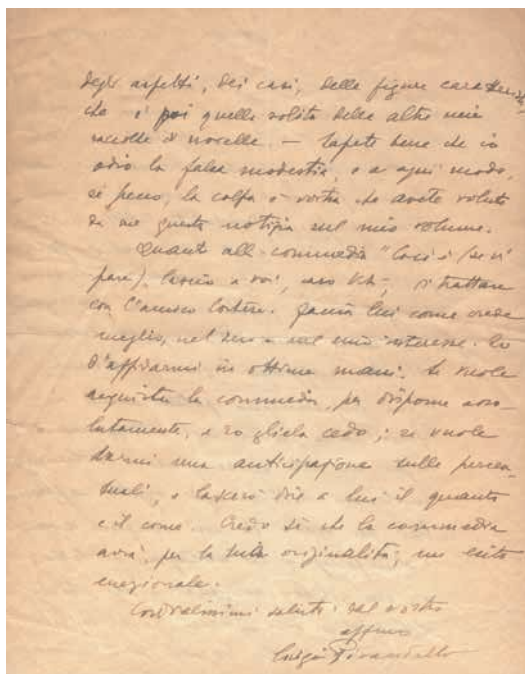 degli aspetti, dei casi, delle figure caratteristi
che è poi quella solita delle altre mie
raccolte di novelle. — Sapete bene che io
odio la falsa modestia, e a ogni modo,
se pecco, la colpa è vostra che avete voluto
da me questa notizia sul mio volume.
Quanto alla commedia "Così è (se vi
pare)" lascio a voi, caro di trattare
con l'amico Faccia lui come crede
meglio, nel suo e nel mio interesse. So
d'affidarmi in ottime mani. Se vuole
acquistar la commedia, per disporne asso-
lutamente, e io gliela cedo; se vuole
darmi una anticipazione sulle percen-
tuali, e lascerò dire a lui il quanto
e il come. Credo sì che la commedia
avrà, per la sua originalità, un esito
eccezionale.
Cordialissimi saluti dal vostro
aff.mo
Luigi Pirandello